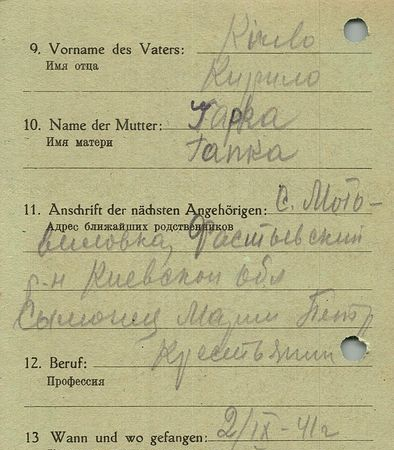 9. Vorname des Vaters: Kirilo
Имя отца Кирило
10. Name der Mutter: Гарка
Имя матери Гапка
11. Anschrift der nächsten Angehörigen: с. Мото-
Адрес ближайших родственников
виловка, Фастьевский
р-н Киевской обл
Марии Петр
12. Beruf: Крестьянин
Профессия
13 Wann und wo gefangen: 2/IX - 41 г